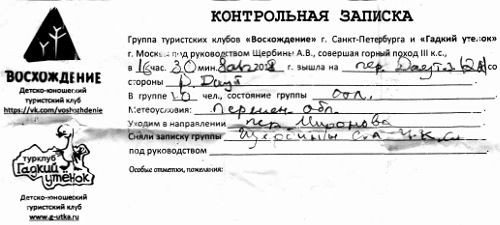 ВОСХОЖДЕНИЕ
Детско-юношеский
туристский клуб
https://vk.com/voshozhdenie
турклуб
Гадкий
утёнок
Детско-юношеский
туристский клуб
www.g-utka.ru
КОНТРОЛЬНАЯ ЗАПИСКА
Группа туристских клубов «Восхождение» г. Санкт-Петербурга и «Гадкий утенок»
г. Москвы под руководством Щербины А.В., совершая горный поход III к.с.,
в 16 час. 30 мин. 8 авг 2018 г. вышла на пер. Даут со
стороны р. Даут
В группе 10 чел., состояние группы
Метеоусловия: Перемен. обл.
Уходим в направлении пер. Миронова
Сняли записку группы Щербины
под руководством
Особые отметки, пожелания: